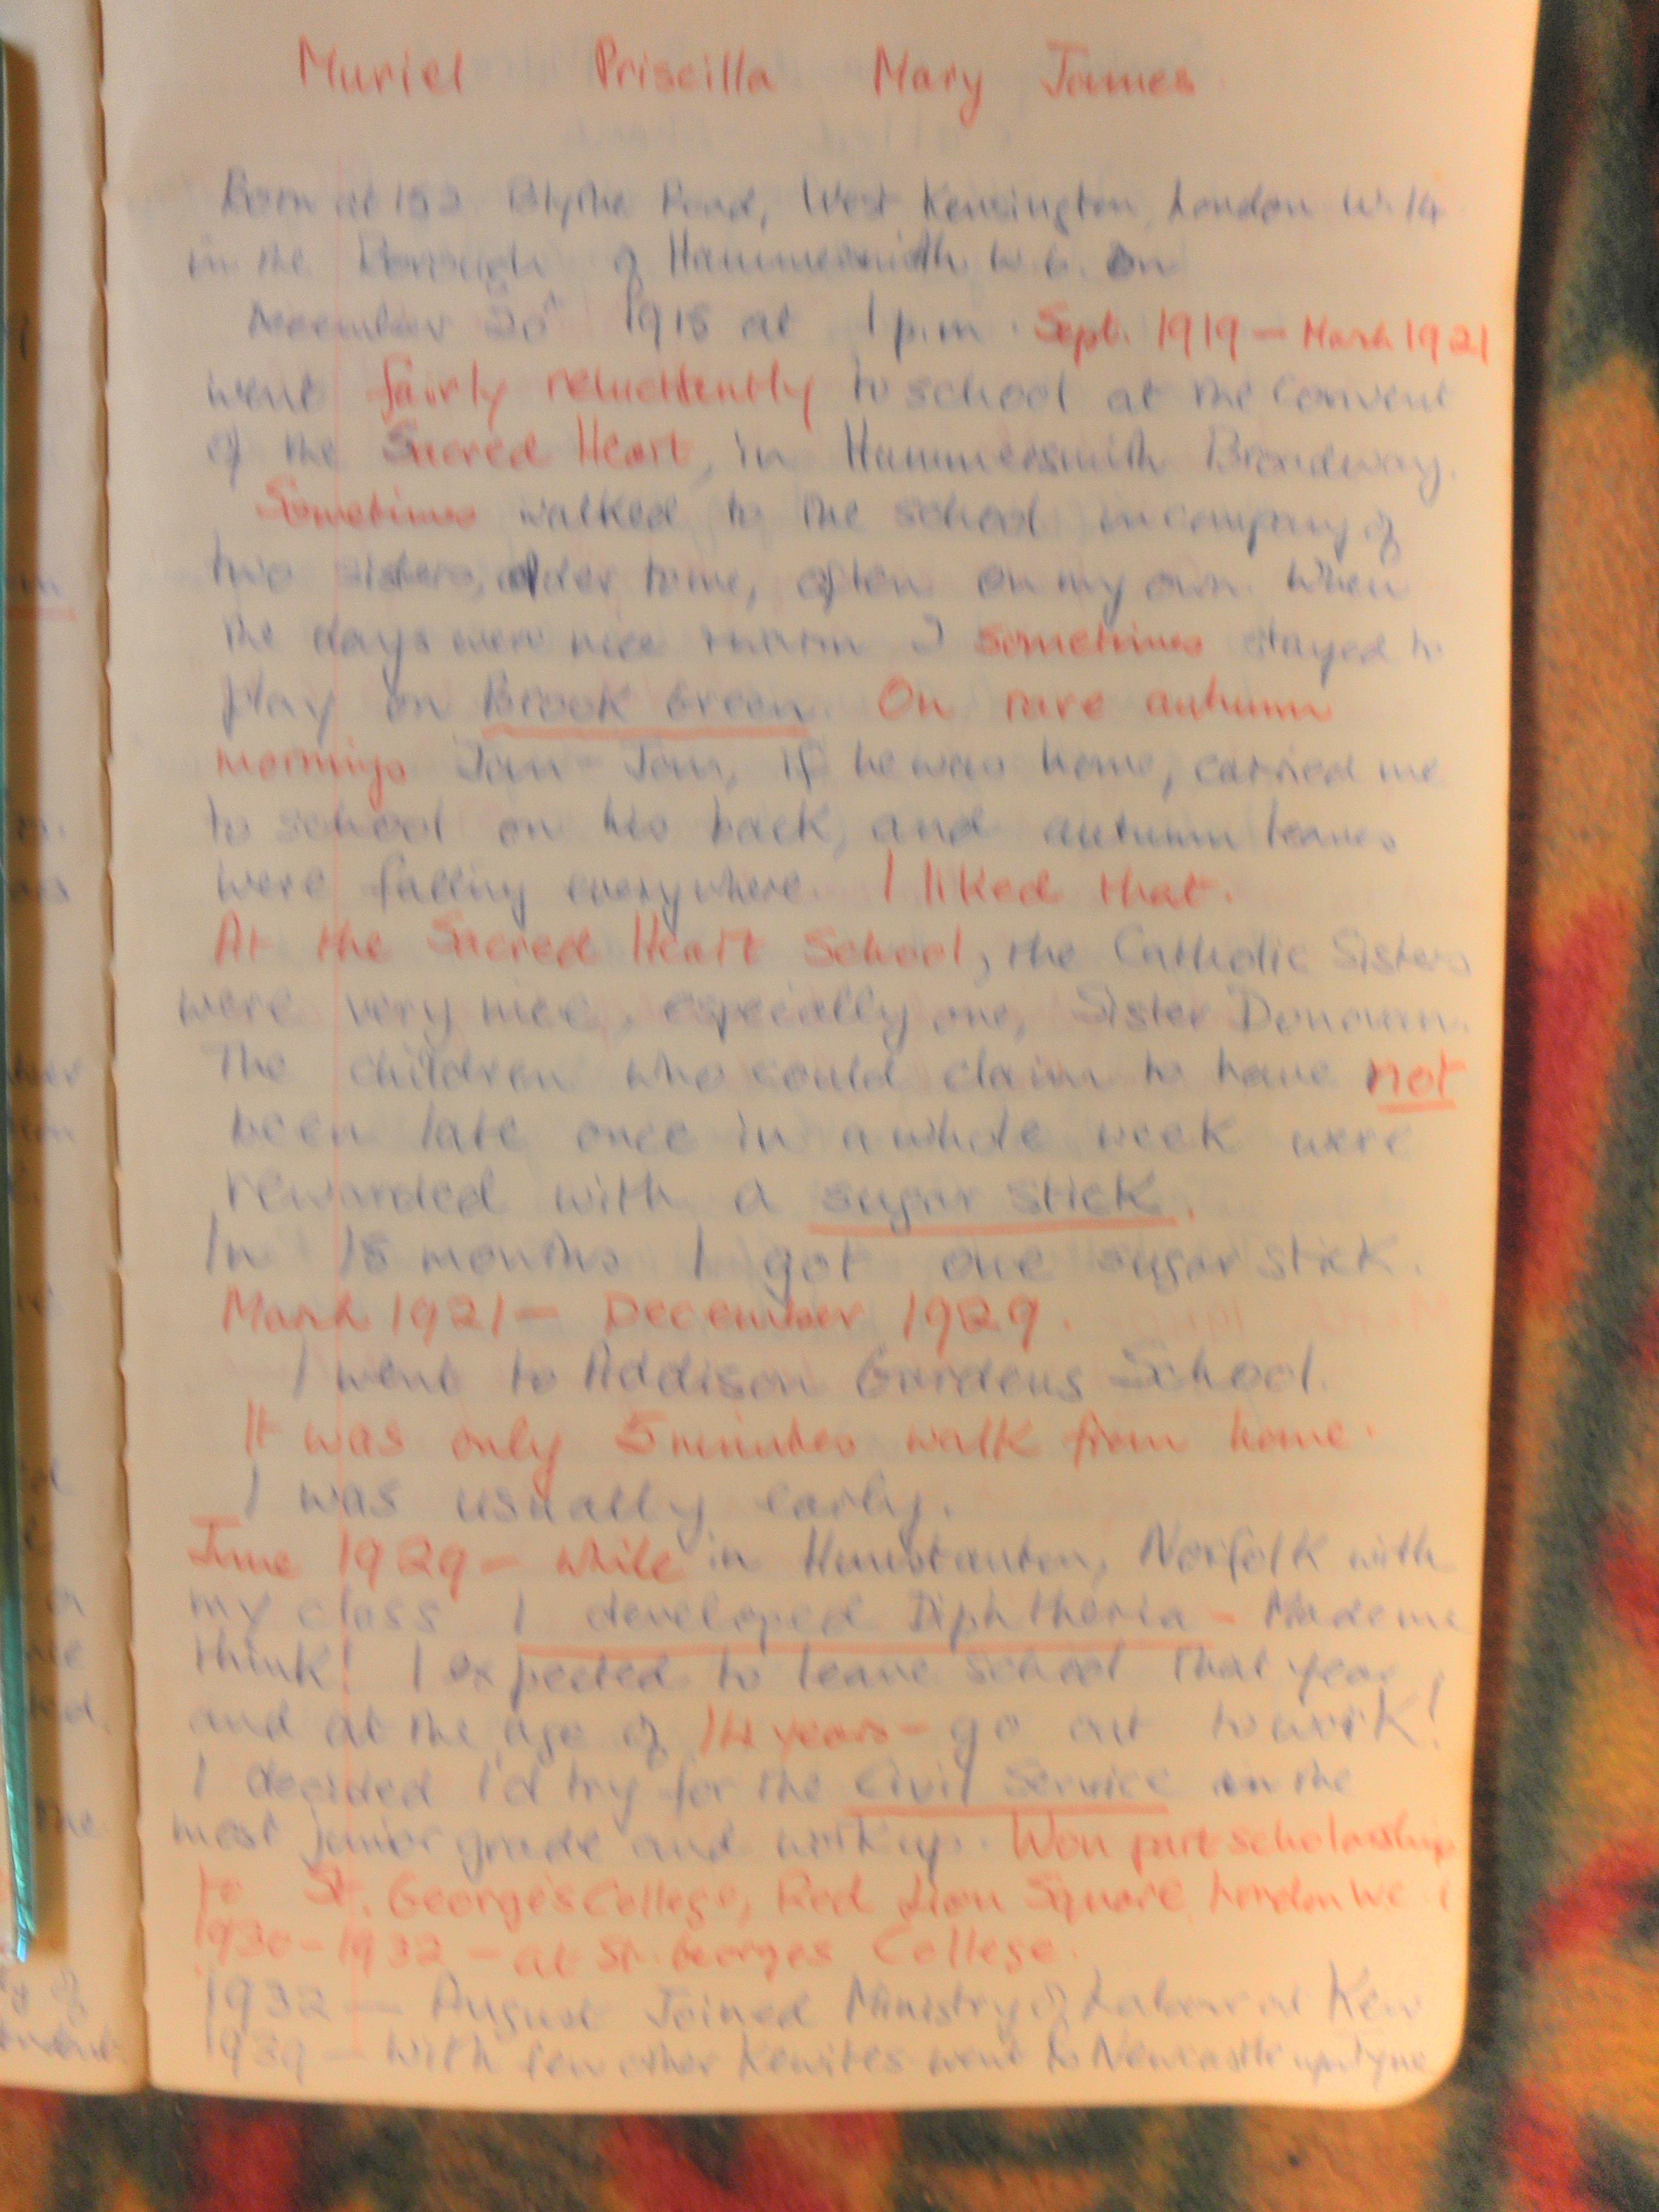 Muriel Priscilla Mary James.
Born at 152 Blythe Road, West Kensington, London W.14
in the Borough of Hammersmith, W.6. on
December 20th 1915 at 1 p.m. Sept. 1919 – March 1921
went fairly reluctently to school at the Convent
of the Sacred Heart, in Hammersmith Broadway.
Sometimes walked to the school in company of
two sisters, older to me, often on my own. When
the days were nice & warm I sometimes stayed to
play on Brook Green. On rare autumn
mornings if he was home, carried me
to school on his back, and autumn leaves
were falling everywhere. I liked that.
At the Sacred Heart School, the Catholic Sisters
were very nice, especially one, Sister Donovan.
The children who could claim to have not
been late once in a whole week were
rewarded with a sugar stick.
In 18 months I got one sugar stick.
March 1921 – December 1929.
I went to Addison Gardens School.
It was only 5 minutes walk from home.
I was usually early.
June 1929 – while in Hunstanton, Norfolk with
my class I developed Diphtheria – Made me
think! I expected to leave school that year,
and at the age of 14 years – go out to work!
I decided I'd try for the Civil Service in the
most junior grade and work up. Won part scholarship
to St. George's College, Red Lion Square, London WC1
1930 – 1932 – at St. Georges College.
1932 – August Joined Ministry of Labour at Kew
1939 – With few other Kewites went to Newcastle upon Tyne